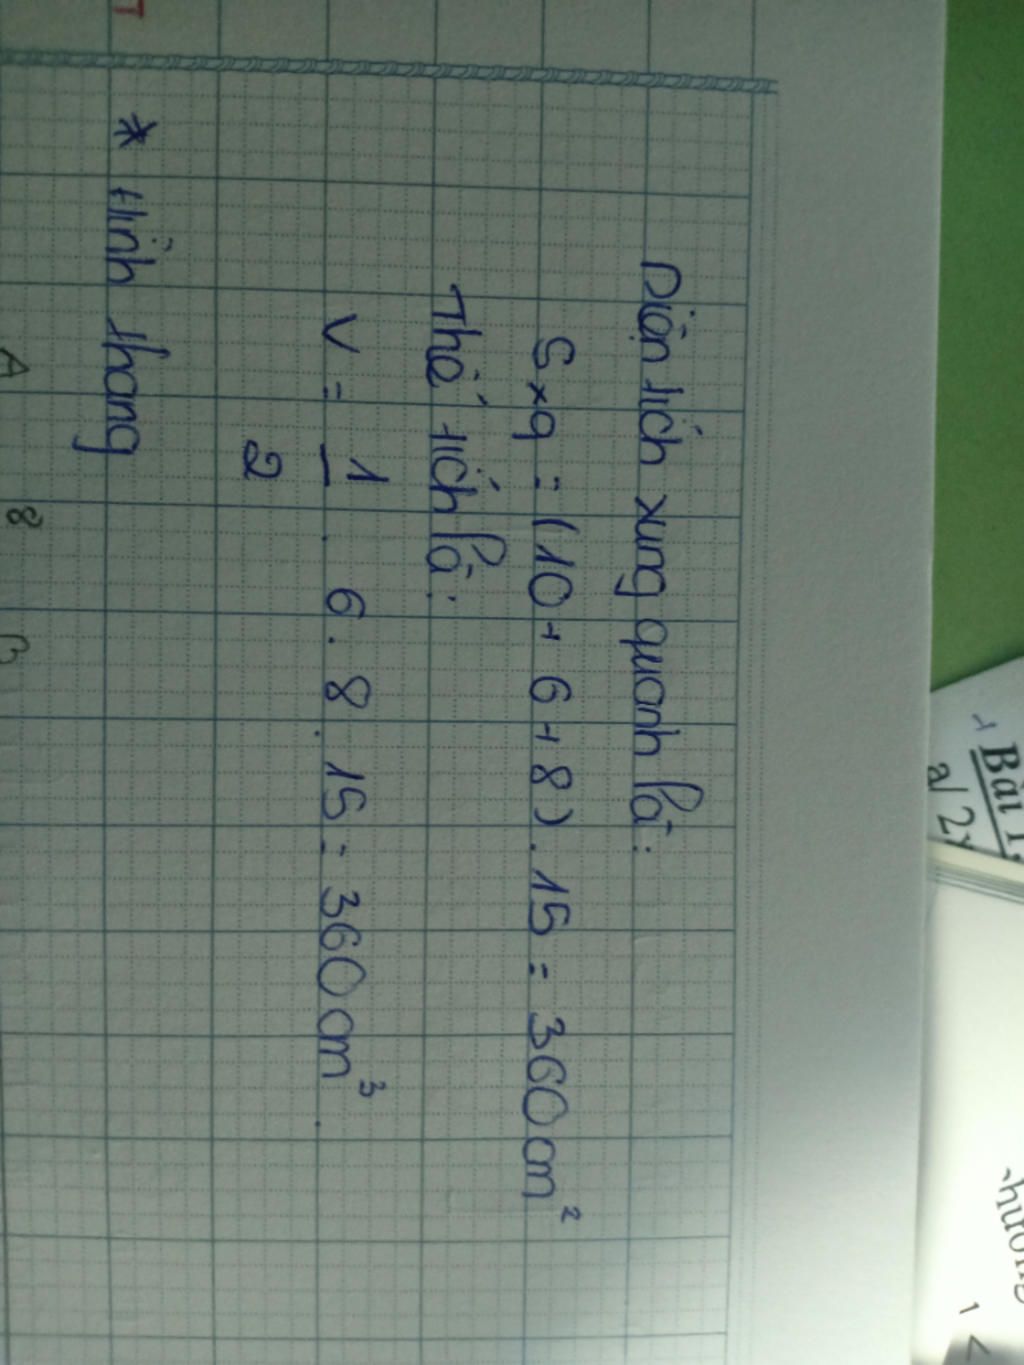 Diện tích xung quanh là:
Sxq = (10 + 6 + 8) . 15 = 360 cm²
Thể tích là:
V = 1/2 . 6 . 8 . 15 = 360 cm³.
* Hình thang
A 8
Bài 1.
a/ 2x